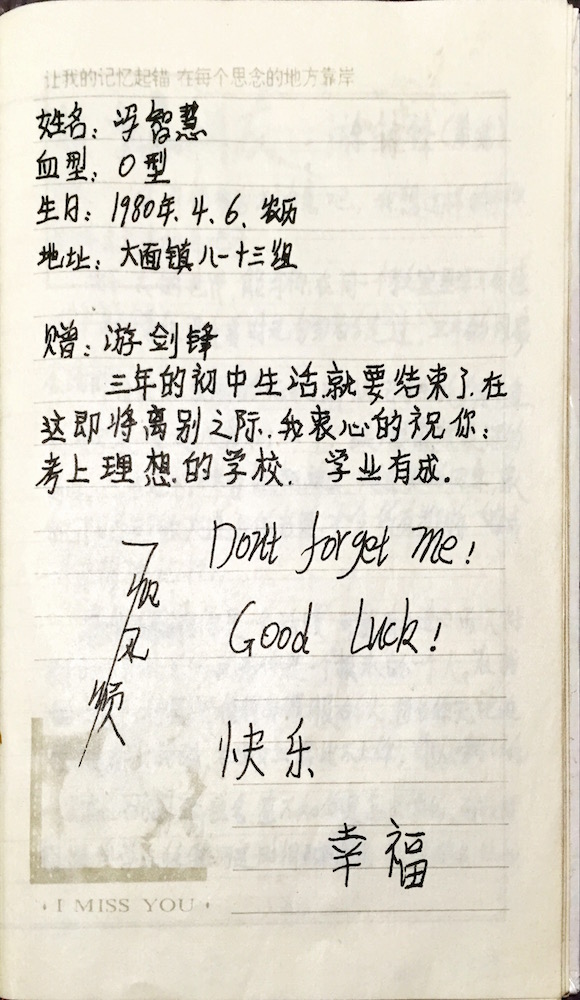 让我的记忆起锚 在每个思念的地方靠岸
姓名：智慧
血型：O型
生日：1980年.4.6.农历
地址：大面镇八一十三组
赠：游剑锋
三年的初中生活就要结束了.在
这即将离别之际.我衷心的祝你：
考上理想的学校.学业有成.
一帆风顺
Don't forget me!
Good Luck!
快乐
幸福
I MISS YOU